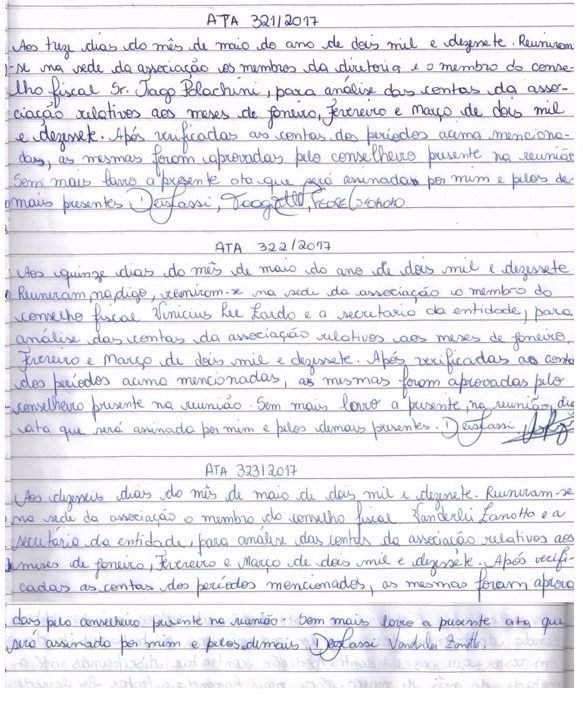 ATA 321/2017
Aos treze dias do mês de maio do ano de dois mil e dezessete. Reuniram
-se na sede da associação os membros da diretoria e o membro do conse-
lho fiscal Sr. Tiago Pelachini, para análise das contas da asso-
ciação relativos aos meses de Janeiro, Fevereiro e Março de dois mil
e dezessete. Após verificadas as contas dos períodos acima menciona-
das, as mesmas foram aprovadas pelo conselheiro presente na reunião
Sem mais lavro a presente ata que será assinada por mim e pelos de-
mais presentes.
ATA 322/2017
Aos quinze dias do mês de maio do ano de dois mil e dezessete
Reuniram, na, digo, reuniram-se na sede da associação o membro do
conselho fiscal Vinicius Lardo e a secretaria da entidade, para
análise das contas da associação relativos aos meses de Janeiro,
Fevereiro e Março de dois mil e dezessete. Após verificadas as contas
dos períodos acima mencionadas, as mesmas foram aprovadas pelo
conselheiro presente na reunião. Sem mais lavro a presente, na reunião, digo
ata que será assinada por mim e pelos demais presentes.
ATA 323/2017
Aos dezesseis dias do mês de maio de dois mil e dezessete. Reuniram-se
na sede da associação o membro do conselho fiscal Vanderlei Zanotto e a
secretaria da entidade, para análise das contas da associação relativos aos
meses de Janeiro, Fevereiro e Março de dois mil e dezessete. Após verifi-
cadas as contas dos períodos mencionados, as mesmas foram aprova
das pelo conselheiro presente na reunião. Sem mais lavro a presente ata que
será assinado por mim e pelos demais. Vanderlei Zanotto.